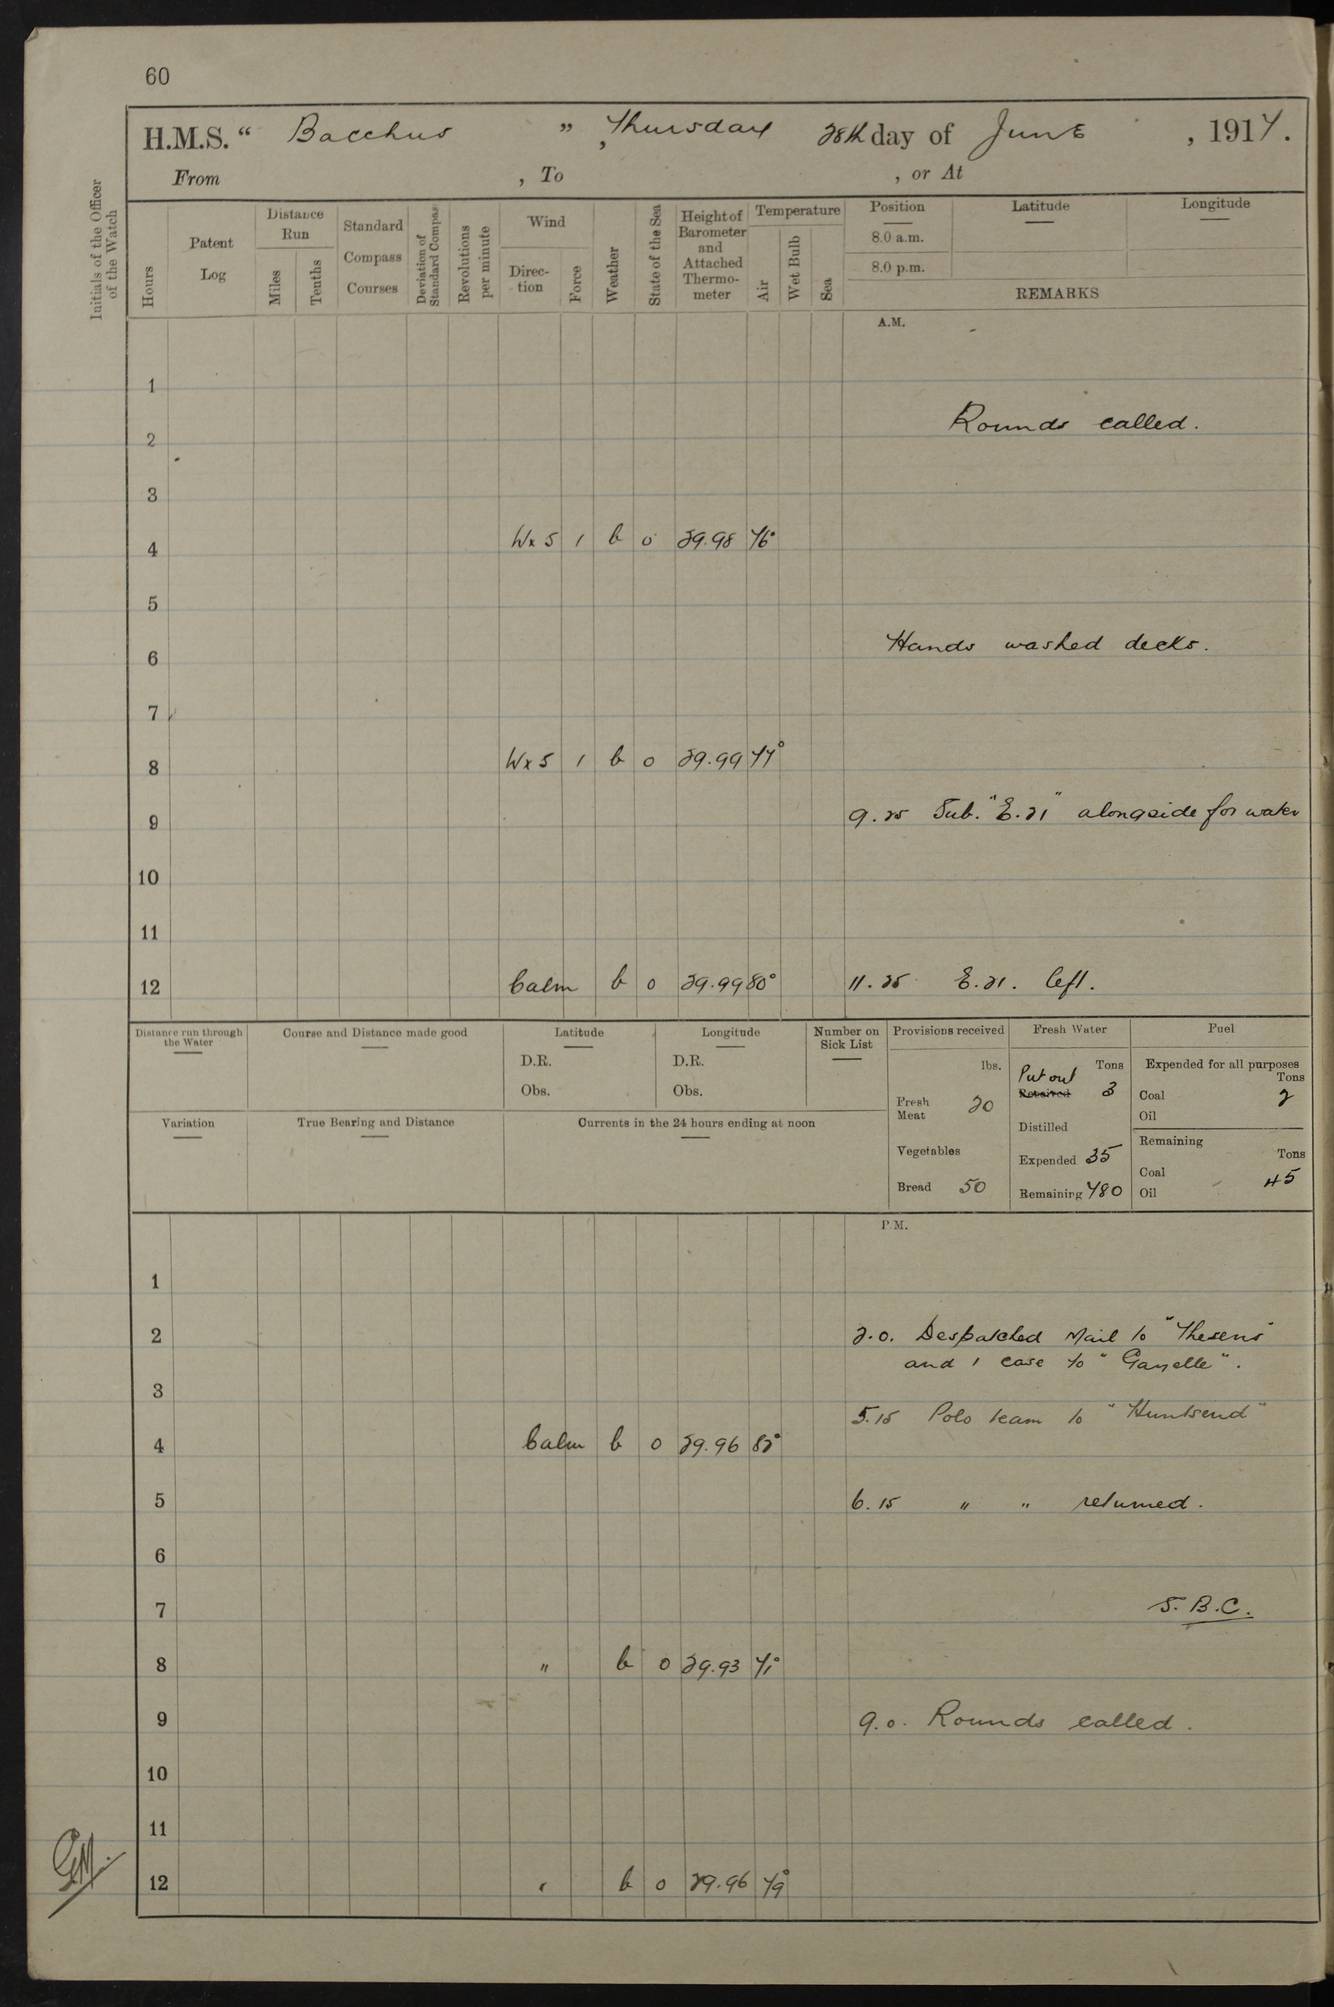 60
H.M.S. " Bacchus ", Thursday 28th day of June, 1917.
From , To , or At
Initials of the Officer of the Watch
Hours
Patent Log
Distance Run
Miles
Tenths
Standard Compass Courses
Deviation of Standard Compass
Revolutions per minute
Wind
Direction
Force
Weather
State of the Sea
Height of Barometer and Attached Thermometer
Temperature
Air
Wet Bulb
Sea
Position Latitude Longitude
8.0 a.m.
8.0 p.m.
REMARKS
A.M.
1
Rounds called.
2
3
4 W x S 1 b 0 29.98 76°
5
Hands washed decks.
6
7
8 W x S 1 b 0 29.99 77°
9 9.25 Sub. "E.21" alongside for water
10
11
12 Calm b 0 29.99 80° 11.25 E.21. left.
Distance run through the Water
Course and Distance made good
Latitude
D.R.
Obs.
Longitude
D.R.
Obs.
Number on Sick List
Provisions received
lbs.
Fresh Meat 20
Vegetables
Bread 50
Fresh Water
Tons
Put out
Received 3
Distilled
Expended 35
Remaining 780
Fuel
Expended for all purposes
Tons
Coal 2
Oil
Remaining
Tons
Coal 45
Oil
Variation
True Bearing and Distance
Currents in the 24 hours ending at noon
P.M.
1
2 2.0. Despatched Mail to "Theseus"
and 1 case to "Gazelle".
3
5.15 Polo team to "Huntsend"
4 Calm b 0 29.96 82°
5 6.15 " " returned.
6
7 S.B.C.
8 " b 0 29.93 71°
9 9.0. Rounds called.
10
11
12 " b 0 29.96 79°